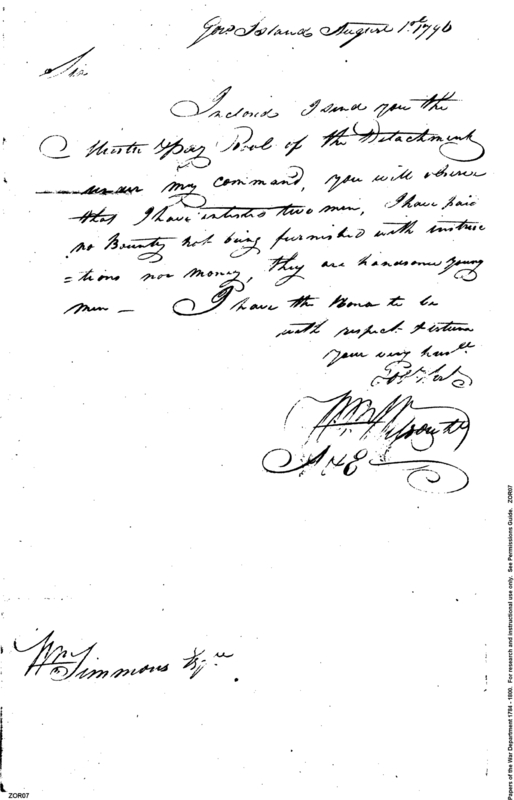 Govs Island August 1st 1796
Sir
Inclosed I send you the
Muster & Pay Roll of the Detachment
under my command, you will observe
that I have enlisted two men, I have paid
no Bounty not being furnished with instruc
=tions nor money, they are handsome young
men — I have the Honor to be
with respect & esteem
your very humle
Obt. Sert
Wm
Wm Simmons Esqre.
Papers of the War Department 1784 - 1800. For research and instructional use only. See Permissions Guide. ZOR07
ZOR07